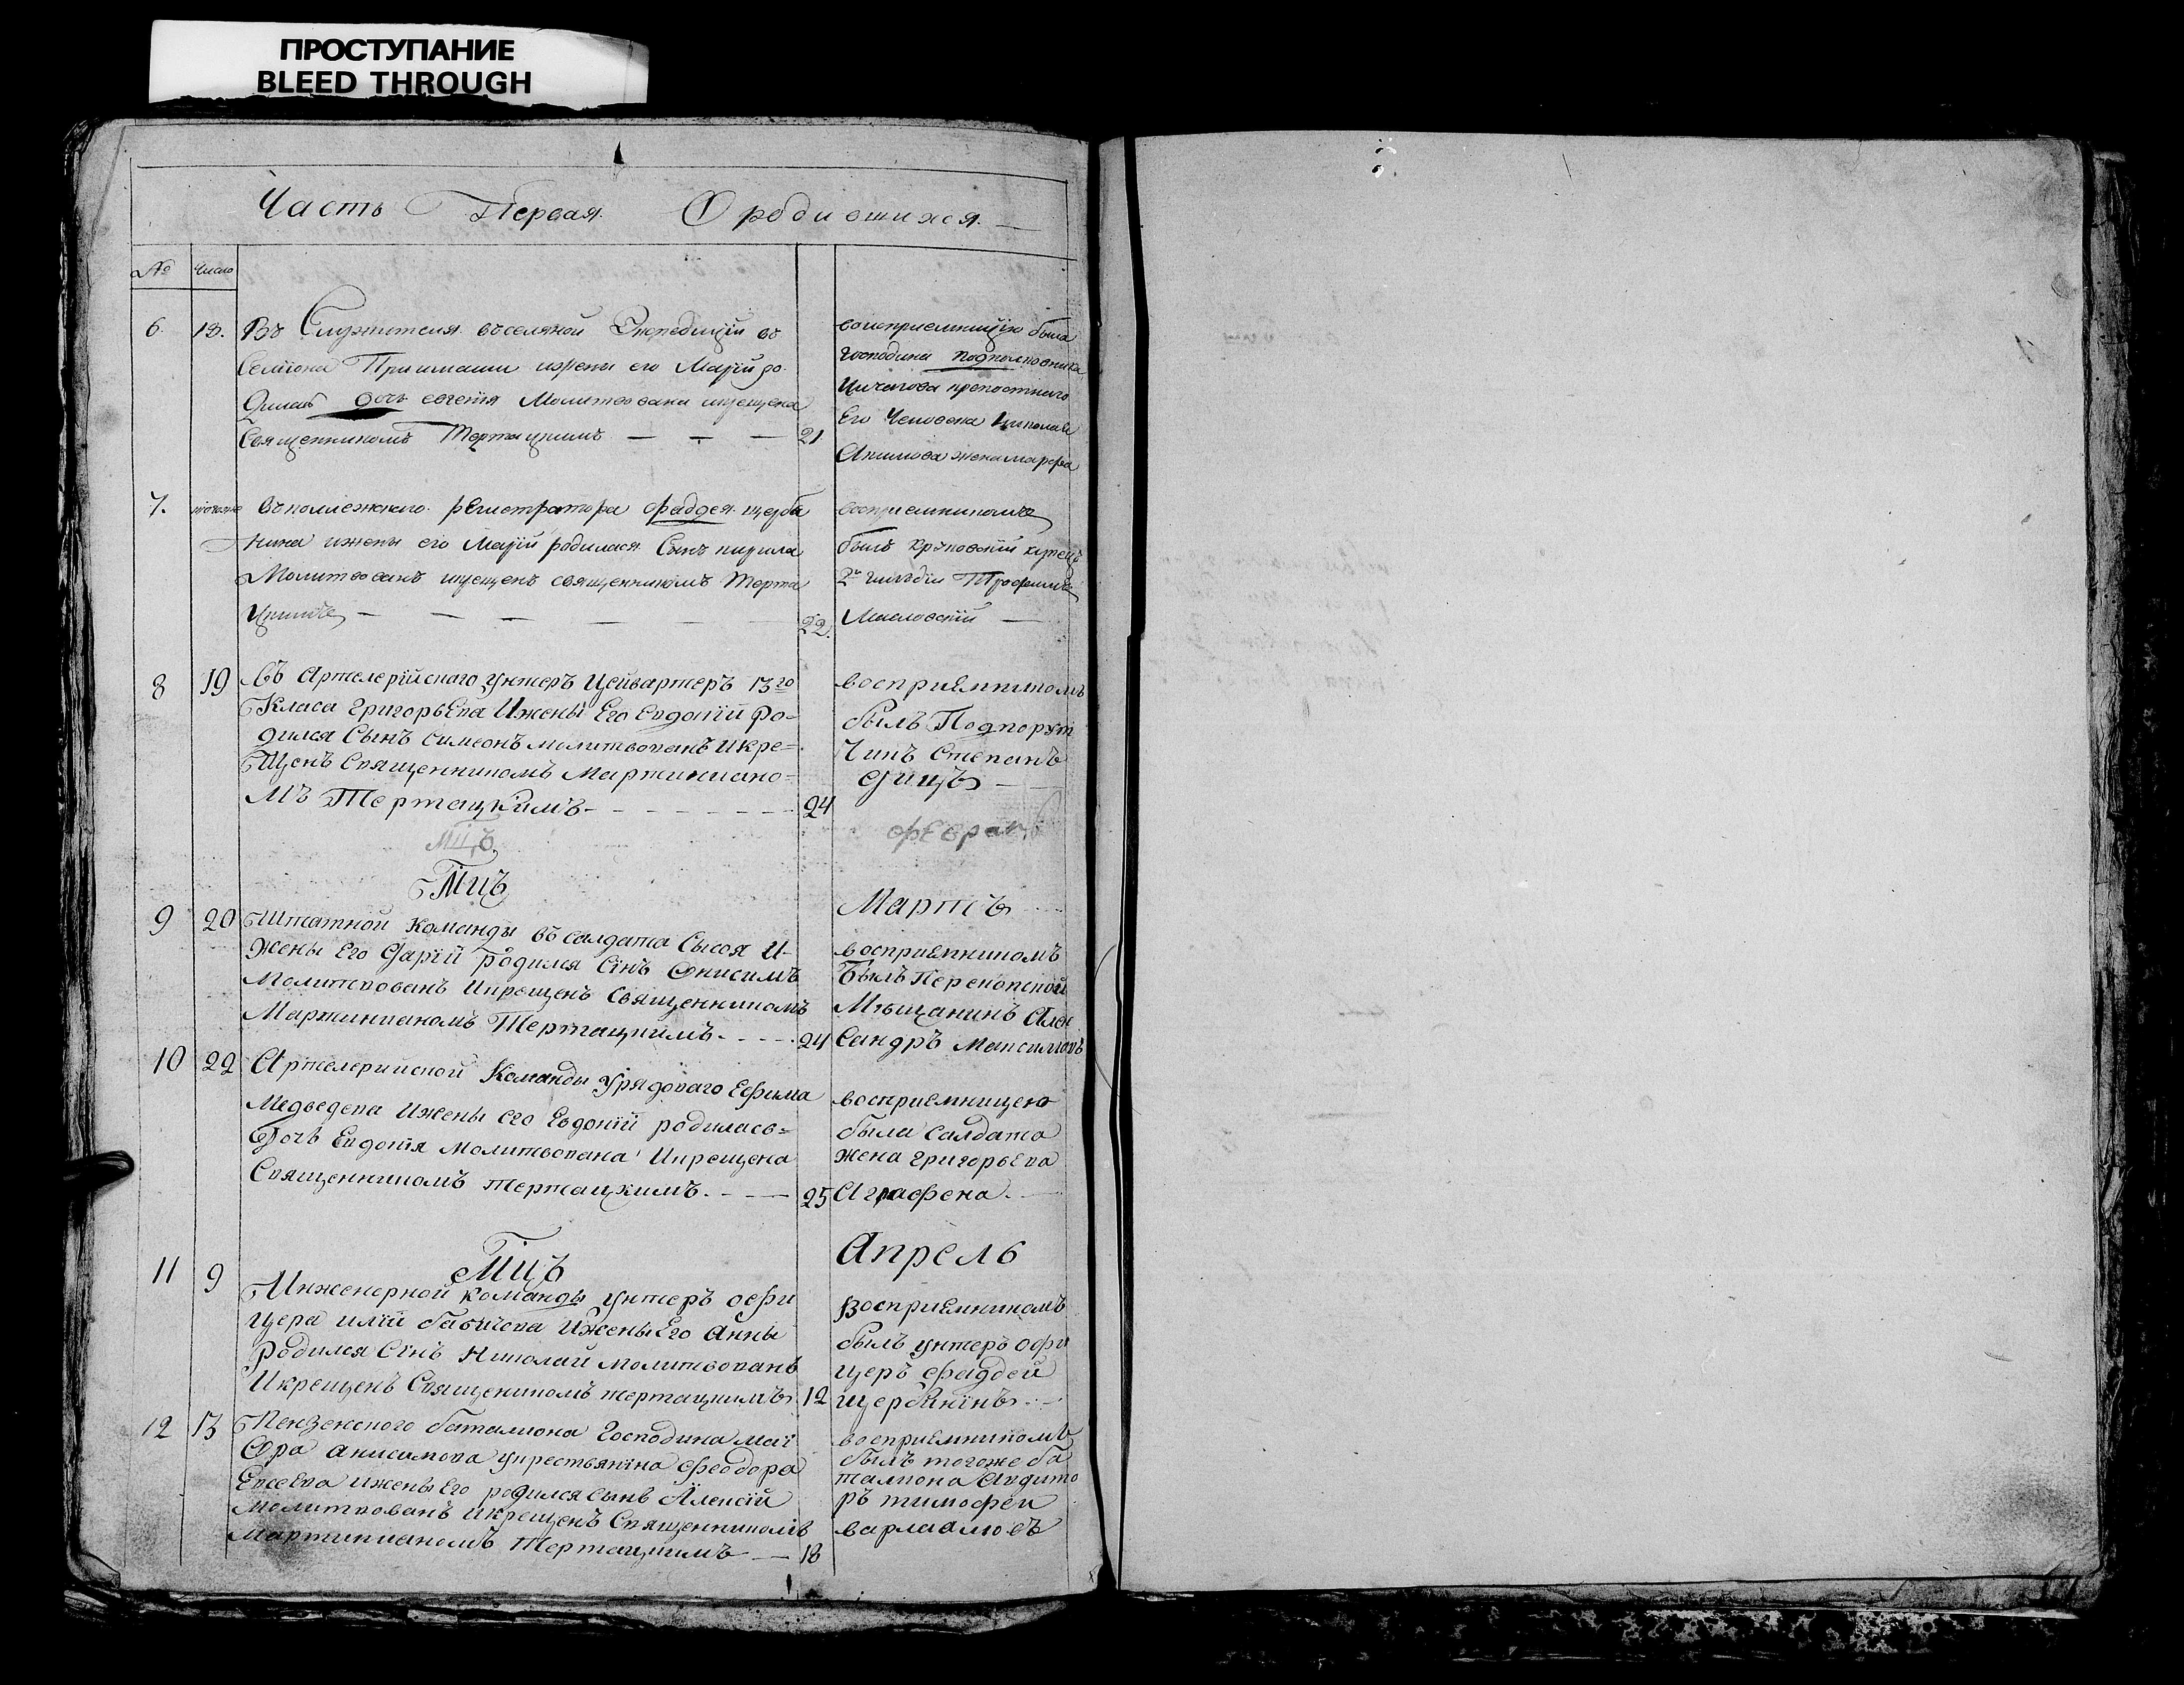 ПРОСТУПАНИЕ
BLEED THROUGH
Часть Первая О родившихся.
№ Число
6. 18. Въ Служителя въ соляной Экспедиціи въ
Семіона ижены его Маріи ро-
дилась дочь евгенія Молитвована икрещена
Священникомъ Тертацкимъ — — — 21
воспріемницею была
господина подполковника
крепостнаго
Его Человека Николая
Акимова жена марфа
7. тогоже Въ регистратора фаддея щерба
кина ижены его Маріи родился Сынъ кирила
Молитвованъ икрещенъ священникомъ Терта
цкимъ — — — — — — 22.
воспріемникомъ
былъ купецъ
2й гильдіи Трофимъ
Масловскій —
8 19 Въ Артелерійскаго унтеръ Цейвартеръ 13го
Класа ГригорьЕва Ижены Его Евдокіи Ро-
дился Сынъ симеонъ молитвованъ икре=
Щенъ Священникомъ Мартиниано=
Мъ Тертацкимъ - - - - - - 24
воспріЕмникомъ
былъ Подпорут
Чикъ Степанъ
Мцъ февраль
Мцъ Мартъ
9 20 Штатной Команды въ салдата Сысоя И-
жены Его Дарій родился Сінъ Онисимъ
Молитвованъ Икрещенъ Священникомъ
Мартинианомъ Тертацкимъ. - - - - 24
воспріЕмникомъ
Былъ Перекопской
Мѣщанинъ Алек
сандръ Максимовъ
10 22 Артелерииской Команды Урядоваго Ефима
Медведева Ижены его Евдокіи родилась=
Дочь Евдокія Молитвована Икрещена
Священникомъ тертацкимъ. - - - 25
воспріемницею
была Салдата
жена григорьЕва
Аграфена. —
Мцъ Апрель
11 9 Инженерной команды унтеръ офи
цера иліи Ижены Его Анны
родился Сінъ Николай молитвованъ
Икрещенъ Священикомъ тертацкимъ 12
ВоспріЕмникомъ
былъ унтеръ офи
церъ фаддей
щербакінъ. -
12 13 Пензенского баталиона Господина маі
Ора анисимова укрестьянина феодора
ЕвсеЕва ижены Его родился сынъ Алексій
Молитвованъ икрещенъ Священникомъ
Мартинианомъ Тертацкимъ — 18
воспріЕмникомъ
былъ тогоже ба
талиона Аудито
ръ тимофеи
варлаамовъ